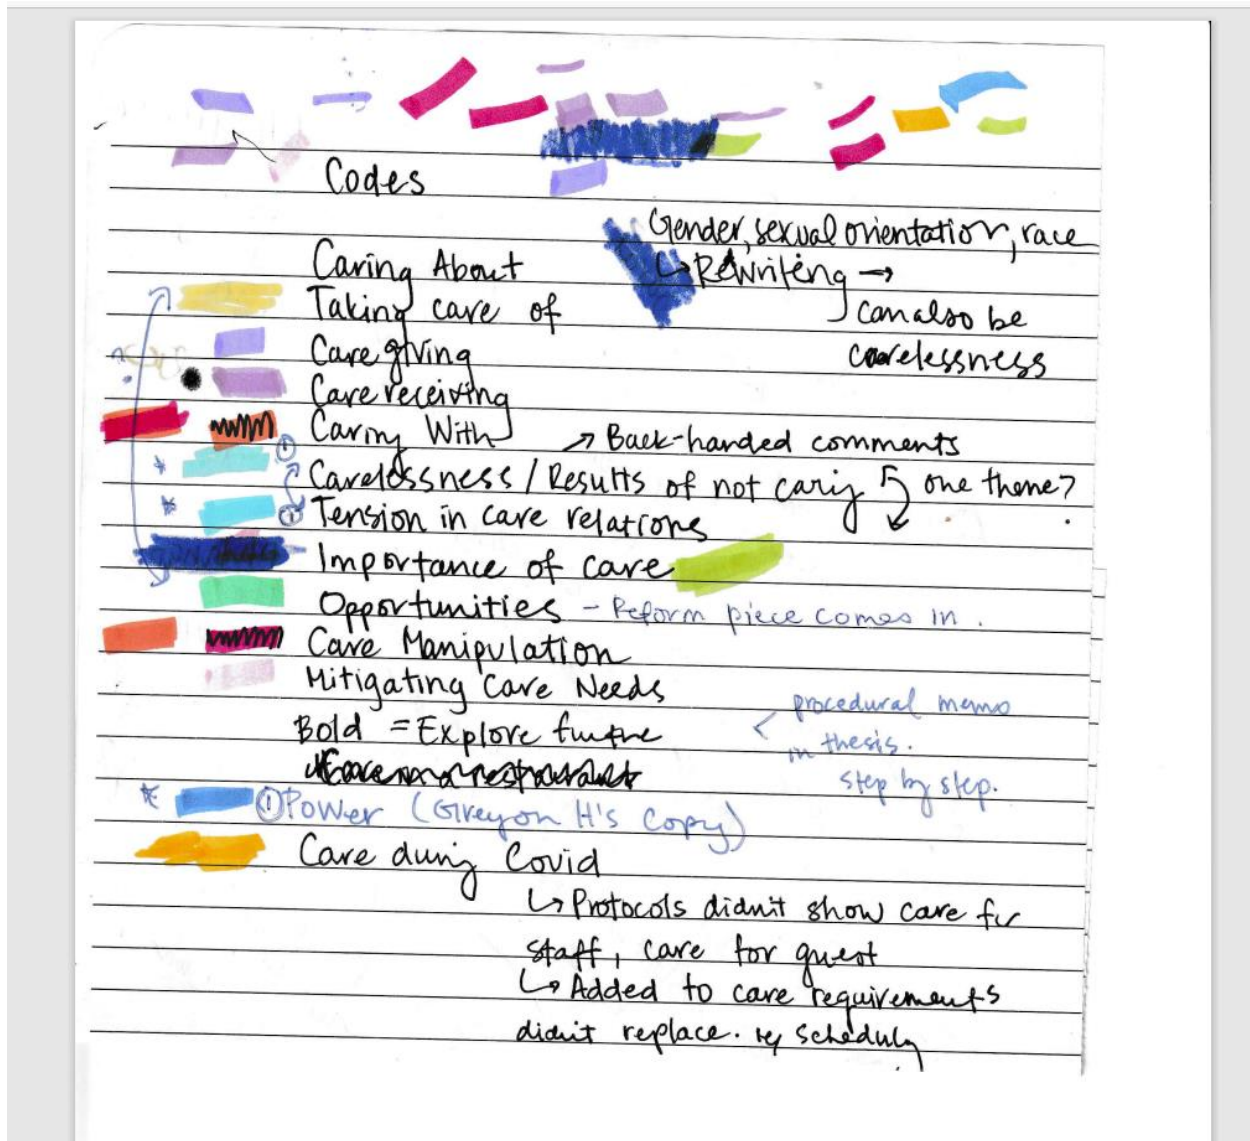 Codes
Gender, sexual orientation, race
↳ Rewriting →
can also be
carelessness
Caring About
Taking care of
Care giving
Care receiving
Caring With
↗ Back-handed comments
Carelessness / Results of not caring
one theme?
① Tension in care relations
Importance of care
Opportunities - Reform piece comes in.
Care Manipulation
Mitigating Care Needs
Bold = Explore
procedural memo
in thesis.
step by step.
* ① Power (Grey on H's copy)
Care during Covid
↳ Protocols didn't show care for
staff, care for guest
↳ Added to care requirements
didn't replace.